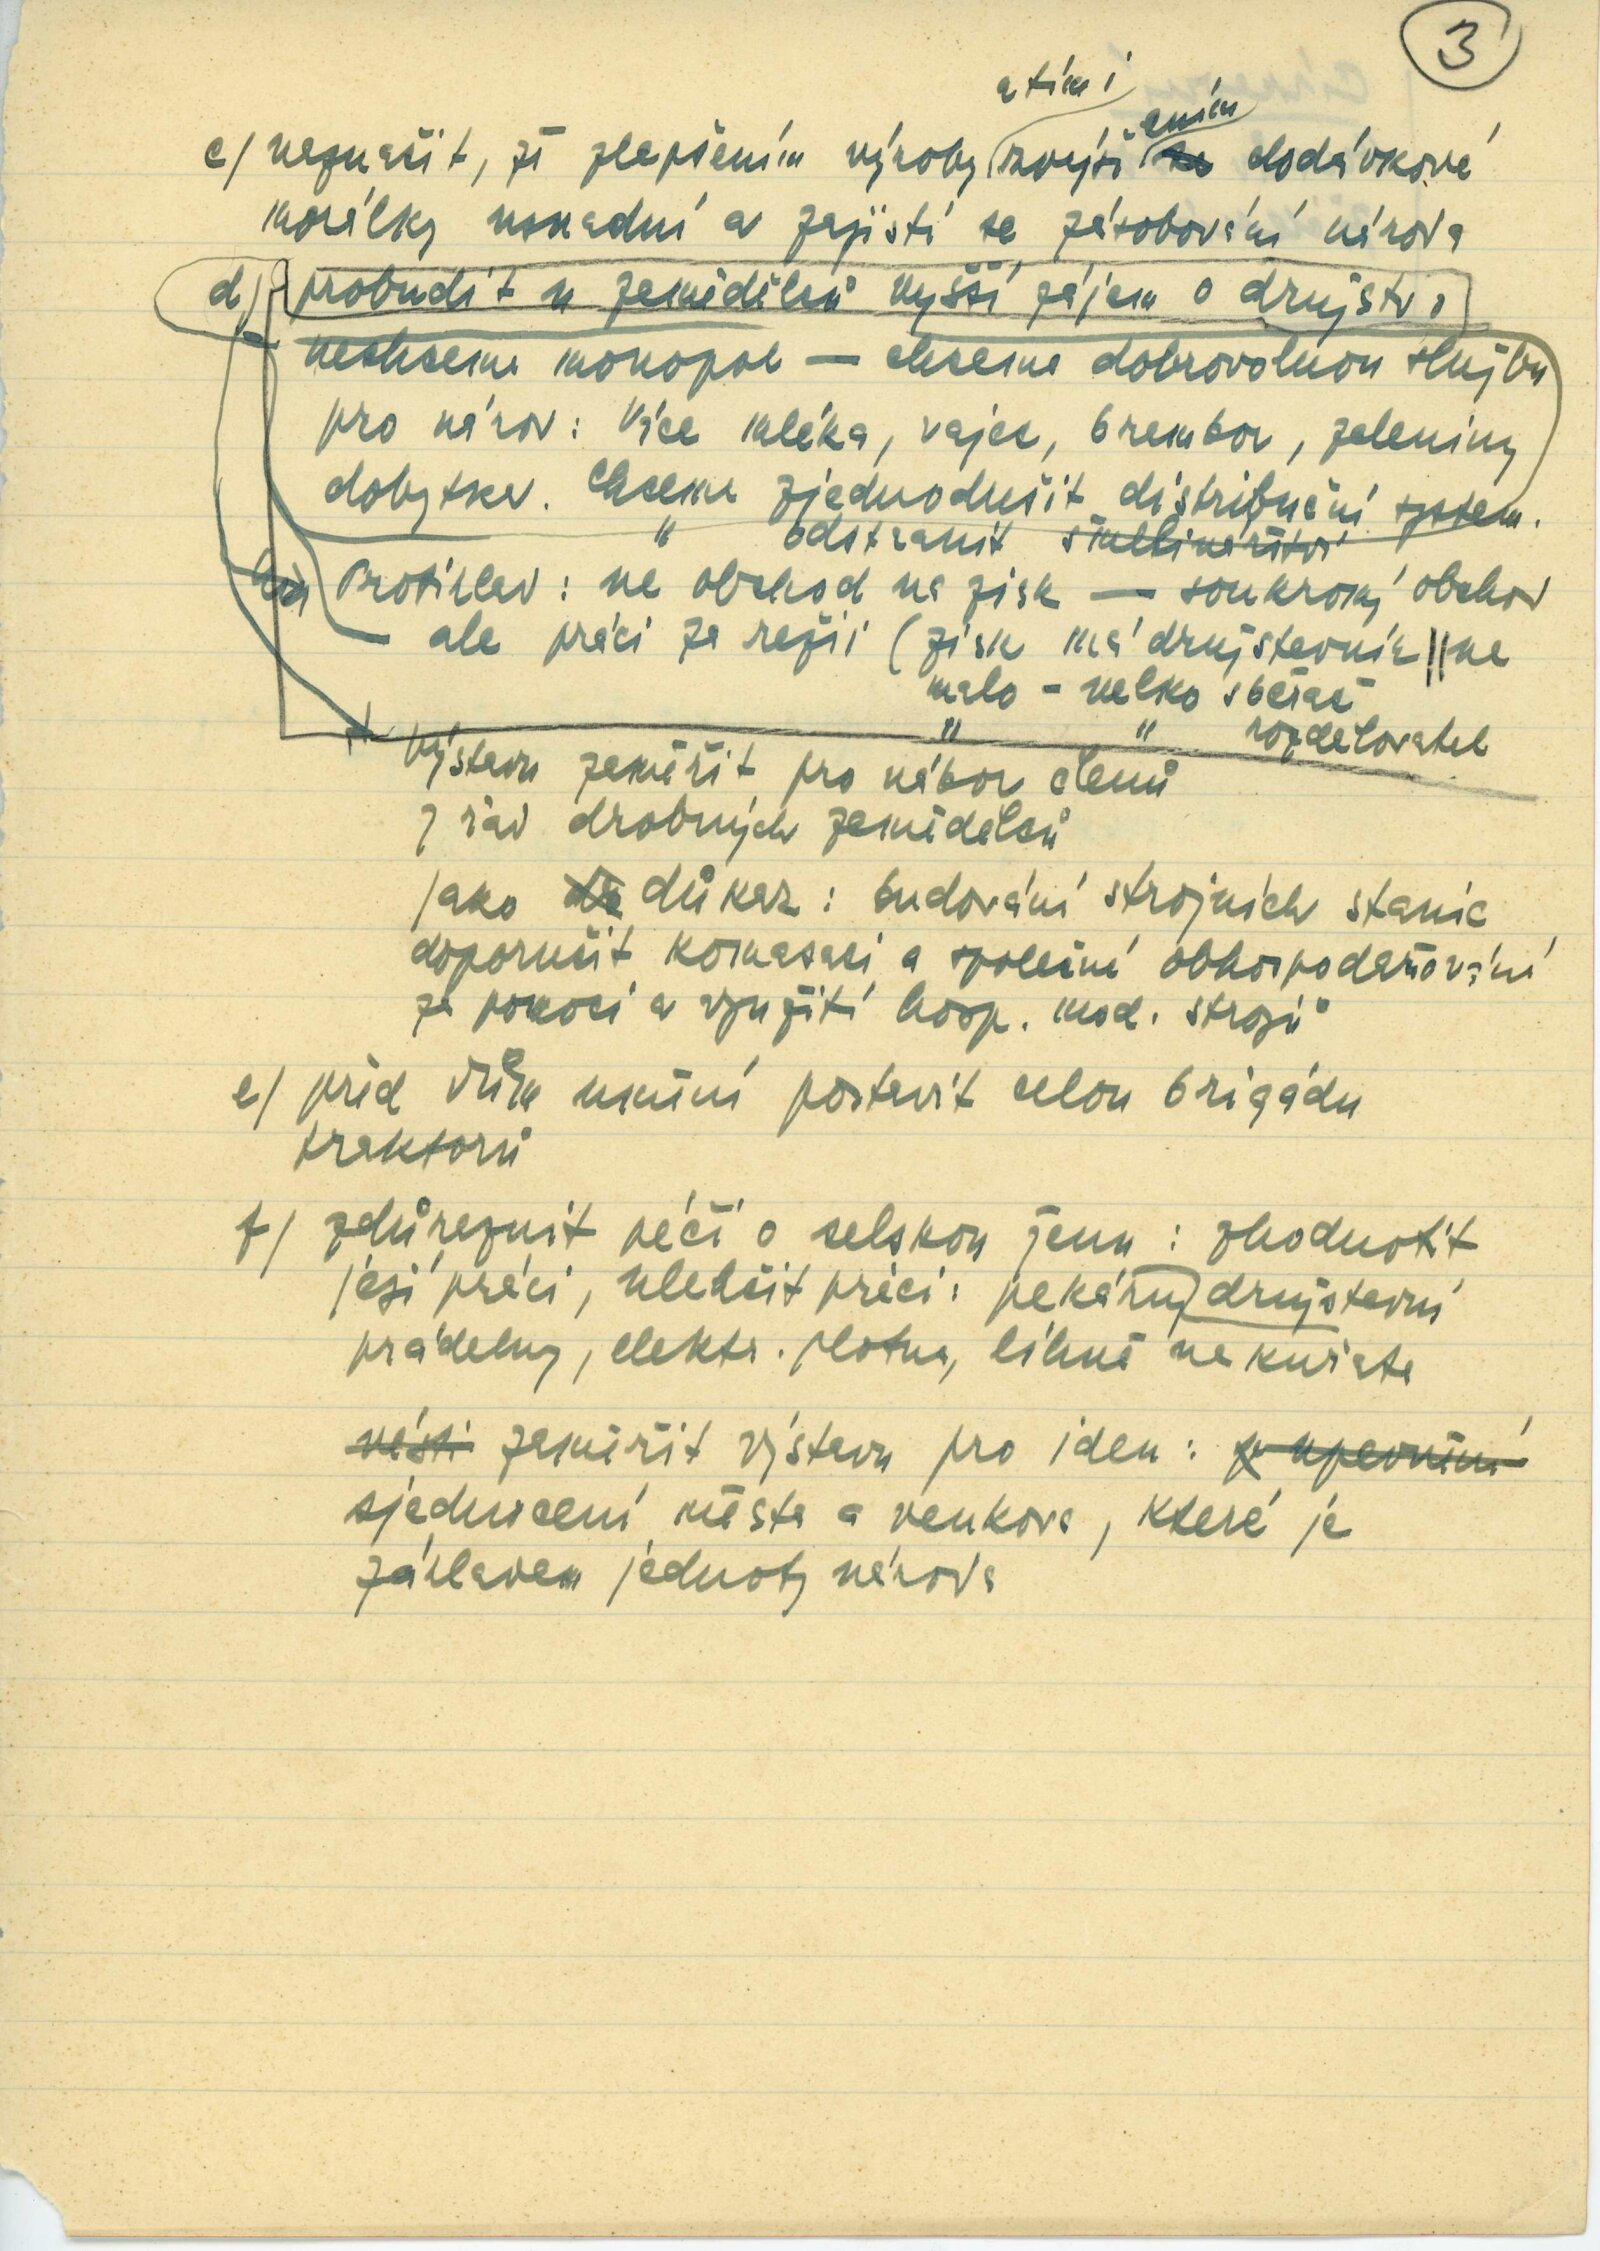 3
a tím i
ením
c/ naznačit, že zlepšením výroby zvýš se dodávkové
morálky usnadní a zajistí se zásobování národa
d) probudit u zemědělců vyšší zájem o družstvo
nechceme monopol — chceme dobrovolnou službu
pro národ: více mléka, vajec, brambor, zeleniny
dobytka. Chceme zjednodušit distribuční system.
" odstranit šmelinářství
Protiklad: ne obchod na zisk — soukromý obchod
ale práci za režii (zisk má družstevník || ne
malo - velko sběrač
" " rozdělovatel
Výstavu zaměřit pro nábor členů
z řad drobných zemědělců
jako důkaz: budování strojních stanic
doporučit komasaci a společné obhospodařování
za pomoci a využití hosp. mod. strojů
e/ před vším uměním postavit celou brigádu
traktorů
f/ zdůraznit péči o selskou ženu: zhodnotit
její práci, ulehčit práci: pekárny družstevní
prádelny, elektr. plotna, líhně na kuřata
zaměřit výstavu pro ideu: upevnění
sjednocení města a venkova, které je
základem jednoty národa